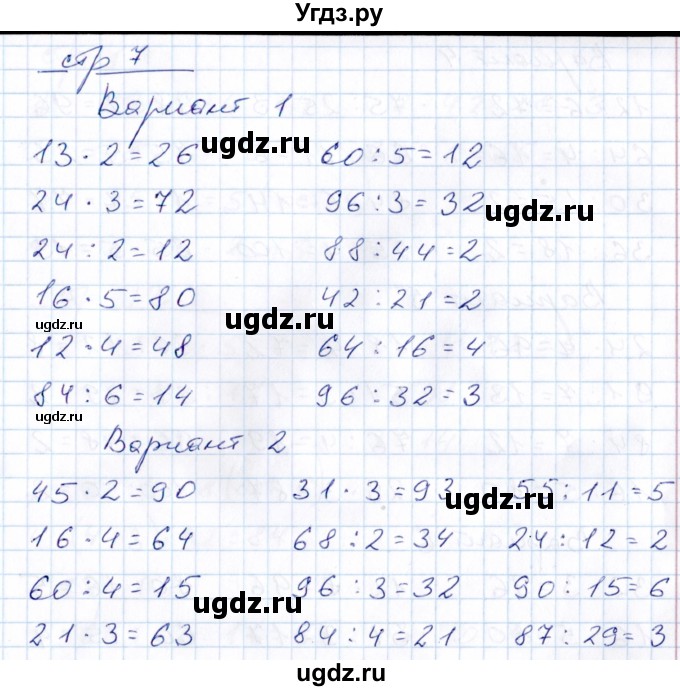 Угдз.ру
стр 7
Вариант 1
13 · 2 = 26 60 : 5 = 12
24 · 3 = 72 96 : 3 = 32
24 : 2 = 12 88 : 44 = 2
16 · 5 = 80 42 : 21 = 2
12 · 4 = 48 64 : 16 = 4
84 : 6 = 14 96 : 32 = 3
Вариант 2
45 · 2 = 90 31 · 3 = 93 55 : 11 = 5
16 · 4 = 64 68 : 2 = 34 24 : 12 = 2
60 : 4 = 15 96 : 3 = 32 90 : 15 = 6
21 · 3 = 63 84 : 4 = 21 87 : 29 = 3
ugdz.ru
ugdz.ru
ugdz.ru
ugdz.ru
ugdz.ru
ugdz.ru
ugdz.ru
ugdz.ru